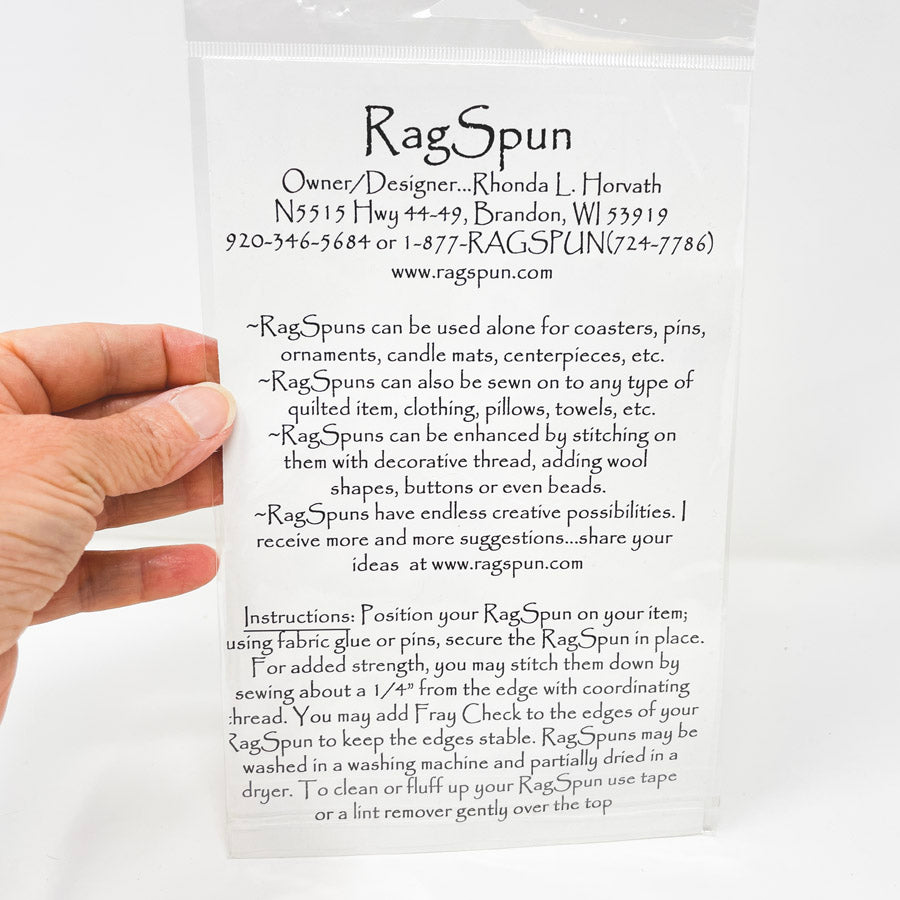 RagSpun
Owner/Designer...Rhonda L. Horvath
N5515 Hwy 44-49, Brandon, WI 53919
920-346-5684 or 1-877-RAGSPUN(724-7786)
www.ragspun.com
~RagSpuns can be used alone for coasters, pins,
ornaments, candle mats, centerpieces, etc.
~RagSpuns can also be sewn on to any type of
quilted item, clothing, pillows, towels, etc.
~RagSpuns can be enhanced by stitching on
them with decorative thread, adding wool
shapes, buttons or even beads.
~RagSpuns have endless creative possibilities. I
receive more and more suggestions...share your
ideas at www.ragspun.com
Instructions: Position your RagSpun on your item;
using fabric glue or pins, secure the RagSpun in place.
For added strength, you may stitch them down by
sewing about a 1/4” from the edge with coordinating
thread. You may add Fray Check to the edges of your
RagSpun to keep the edges stable. RagSpuns may be
washed in a washing machine and partially dried in a
dryer. To clean or fluff up your RagSpun use tape
or a lint remover gently over the top